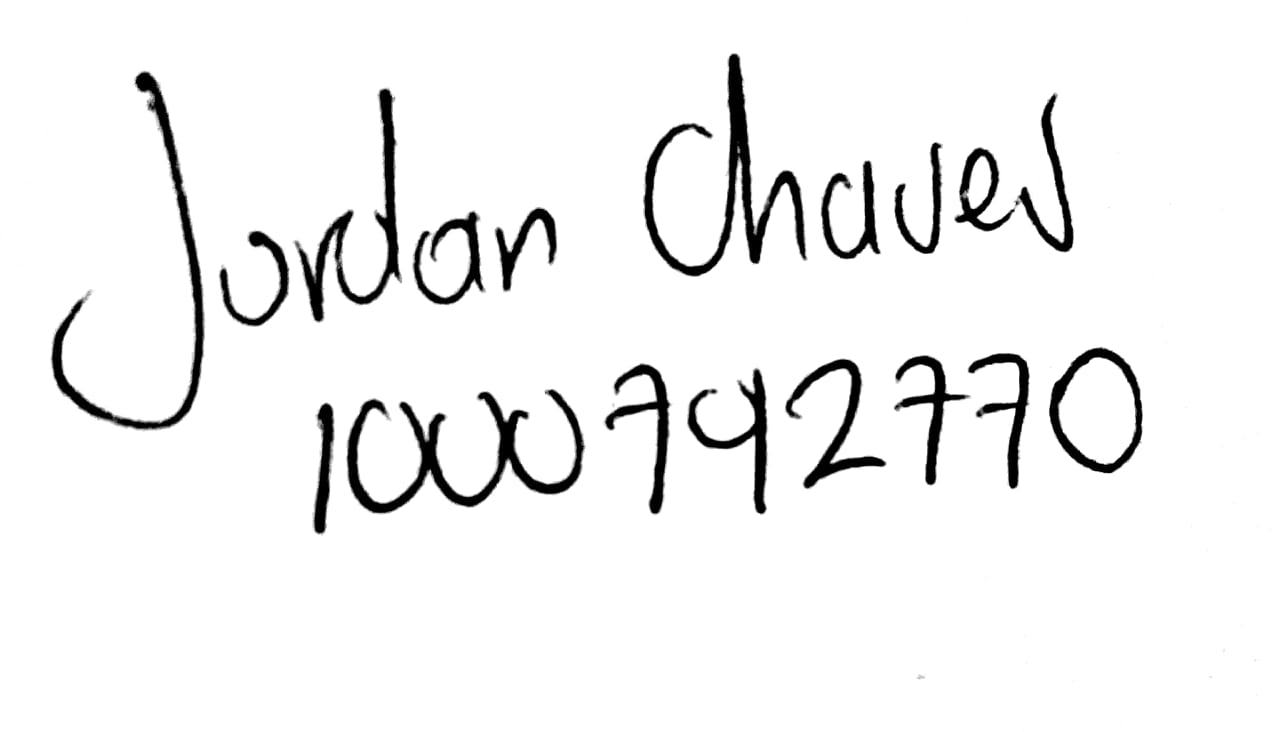 Jordan Chaves
1000792770